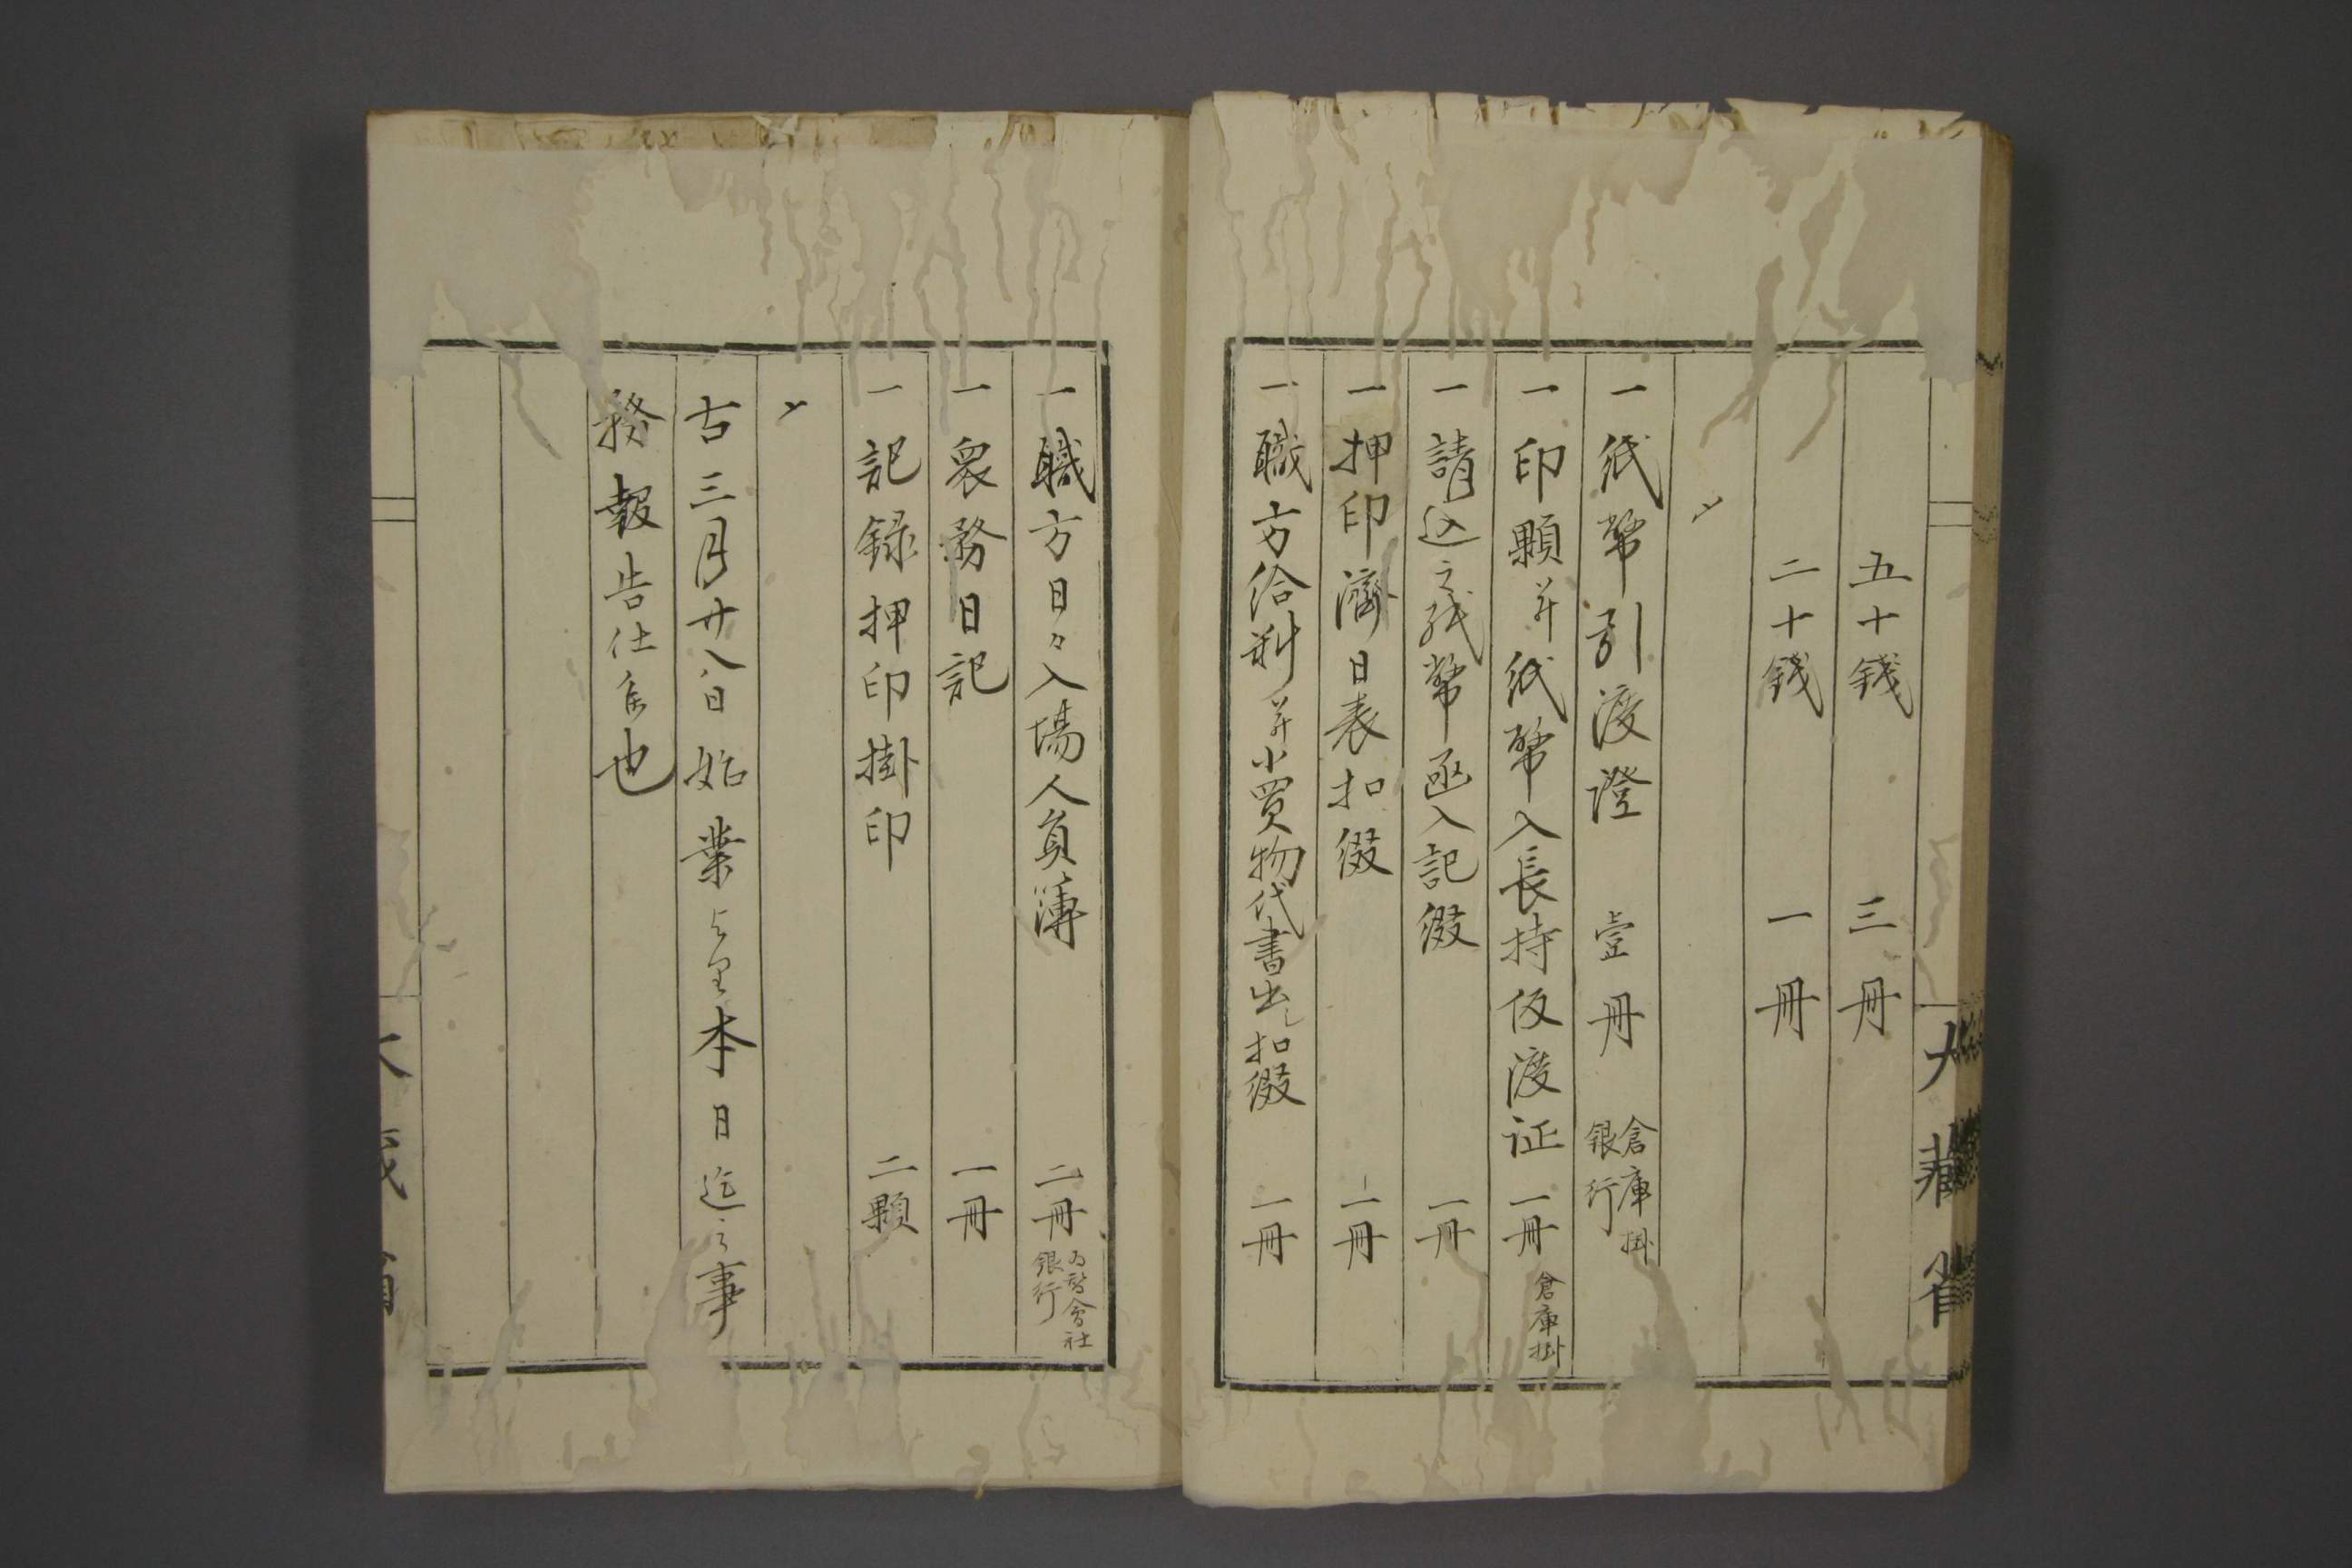 五十錢 三冊
二十錢 一冊
〆
一 紙幣引渡證 壹冊 倉庫掛 銀行
一 印顆并紙幣入長持仮渡证 一冊 倉庫掛
一 請込之紙幣函入記綴 一冊
一 押印濟日表扣綴 一冊
一 職方給料并小買物代書出し扣綴 一冊
大藏省
一 職方日々入場人員簿 二冊 為替會社 銀行
一 衆務日記 一冊
一 記録押印掛印 二顆
〆
古三月廿八日始業ゟ本日迄之事
務報告仕候也